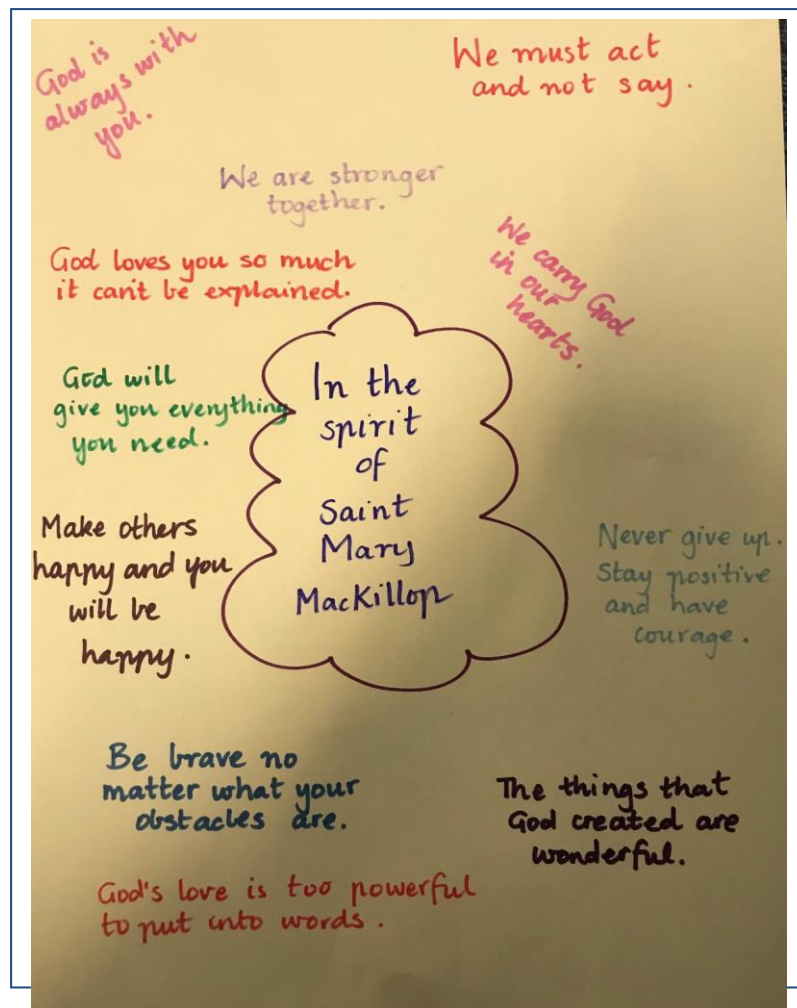 God is
always with
you.
We must act
and not say.
We are stronger
together.
God loves you so much
it can't be explained.
We carry God
in our
hearts.
God will
give you everything
you need.
In the
spirit
of
Saint
Mary
MacKillop
Make others
happy and you
will be
happy.
Never give up.
Stay positive
and have
courage.
Be brave no
matter what your
obstacles are.
The things that
God created are
wonderful.
God's love is too powerful
to put into words.